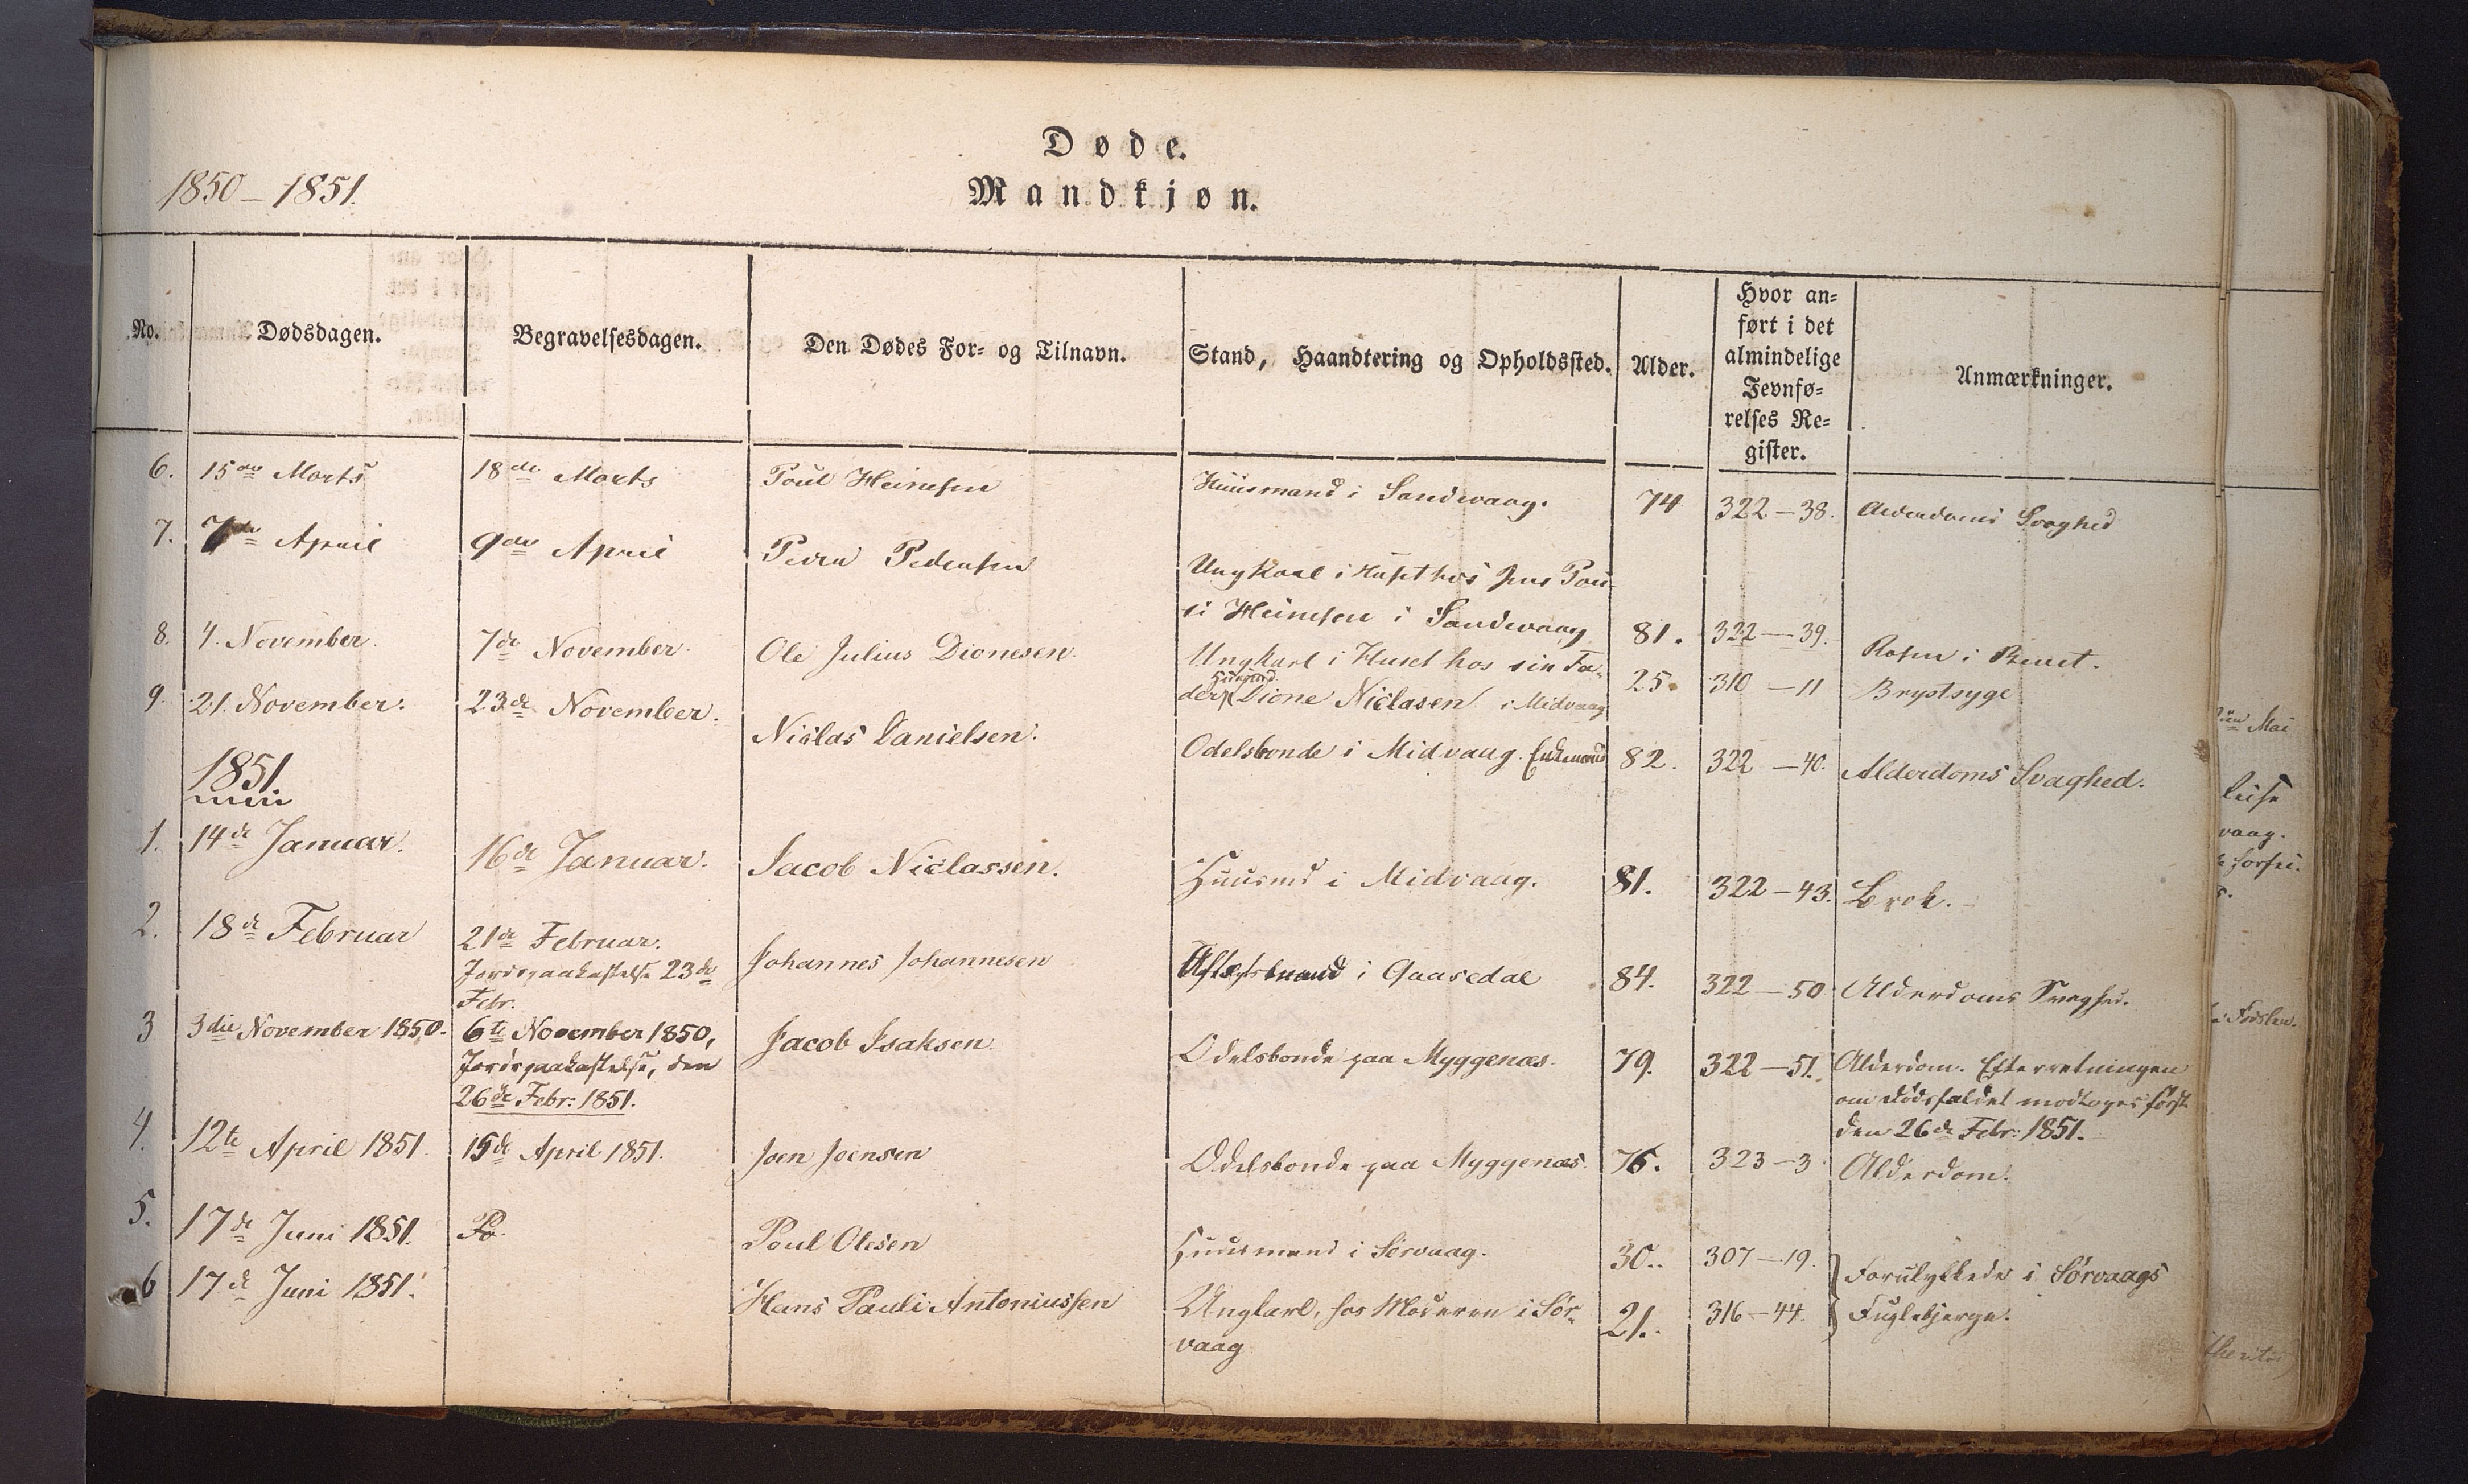 Døde.
Mandkjøn.
1850 – 1851.
No. Dødsdagen. Begravelsesdagen. Den Dødes For- og Tilnavn. Stand, Haandtering og Opholdssted. Alder. Hvor an-
ført i det
almindelige
Jevnfø-
relses Re-
gister. Anmærkninger.
6. 15de Marts 18de Marts Poul Heinesen Huusmand i Sandevaag. 74 322 – 38. Alderdoms Svaghed
7. 7de April 9de April Peder Pedersen Ungkarl i Huset hos Jens Pou-
li Heinesen i Sandevaag 81. 322 – 39. Rosen i Benet.
8. 4. November. 7de November. Ole Julius Dionesen. Ungkarl i Huset hos sin Fa-
der Huusmd. Dione Niclasen i Midvaag 25. 310 – 11 Brystsyge
9. 21. November. 23de November. Niclas Danielsen. Odelsbonde i Midvaag. Enkemand 82. 322 – 40. Alderdoms Svaghed.
1851.
1. 14de Januar. 16de Januar. Jacob Niclassen. Huusmd i Midvaag. 81. 322 – 43. Brok.
2. 18de Februar 21de Februar.
Jordspaakastelse 23de
Febr. Johannes Johannesen Aftægtsmand i Gaasedal 84. 322 – 50 Alderdoms Svaghed.
3 3die November 1850. 6te November 1850,
Jordspaakastelse, den
26de Febr. 1851. Jacob Isaksen. Odelsbonde paa Myggenæs. 79. 322 – 51. Alderdom. Efterretningen
om Dødsfaldet modtoges først
den 26de Febr. 1851.
4. 12te April 1851. 15de April 1851. Joen Joensen Odelsbonde paa Myggenæs. 76. 323 – 3 Alderdom.
5. 17de Juni 1851. Poul Olesen Huusmand i Sørvaag. 30.. 307 – 19. Forulykkede i Sørvaags
6 17de Juni 1851. Hans Pauli Antoniussen Ungkarl, hos Moderen i Sør-
vaag 21. 316 – 44. Fuglebjerge.
Mai
vaag.